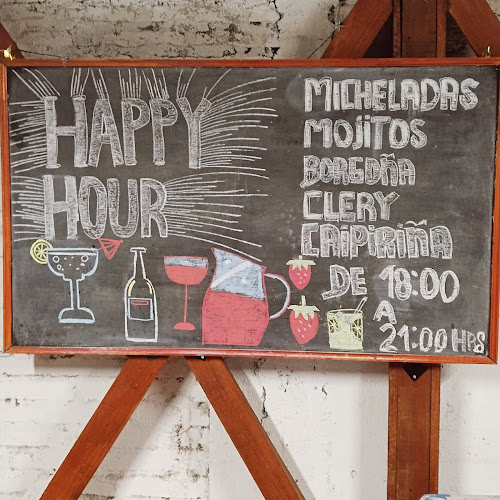 HAPPY
HOUR
MICHELADAS
MOJITOS
BORGOÑA
CLERY
CAIPIRIÑA
DE 18:00
A
21:00 HRS